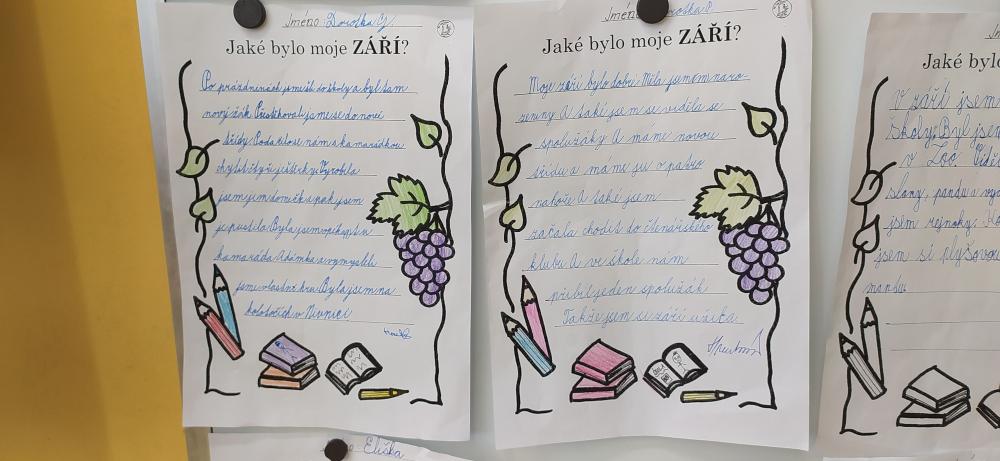 Jméno: Dorotka Y.
Jaké bylo moje ZÁŘÍ?
Po prázdninách jsme šli do školy a byl tam
nový žák. Přestěhovali jsme se do nové
třídy. Podařilo se nám s kamarádkou
chytit čtyři ještěrky. Vyrobila
jsem jim domeček a pak jsem
je pustila. Byla jsem
kamaráda Adámka a vymysleli
jsme vlastní hru. Byla jsem na
kolotočích v Nivnici
Jméno
Jaké bylo moje ZÁŘÍ?
Moje září bylo dobré. Měla jsem naro-
zeniny. A také jsem se viděla se
spolužáky. A máme novou
třídu a máme ju v patro
nahoře. A také jsem
začala chodit do čtenářského
klubu. A ve škole nám
přibil jeden spolužák
Takže jsem si září užila.
Jaké bylo
V září jsem
školy. Byl jsem
v Zoo. Vidě
slony, pandu a
jsem rejnoky.
jsem si plyšovou
pandu
Eliška